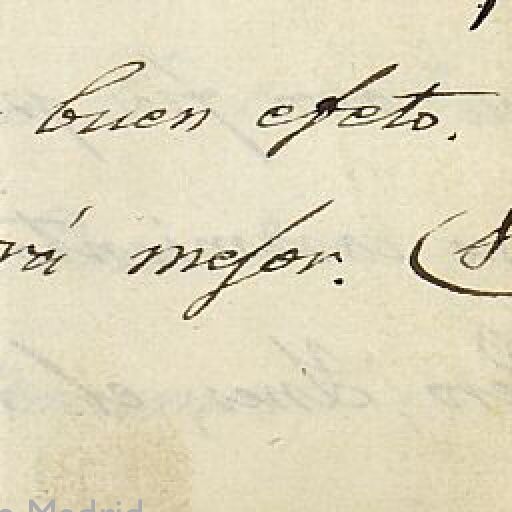 buen efeto.
rá mejor. (
Madrid